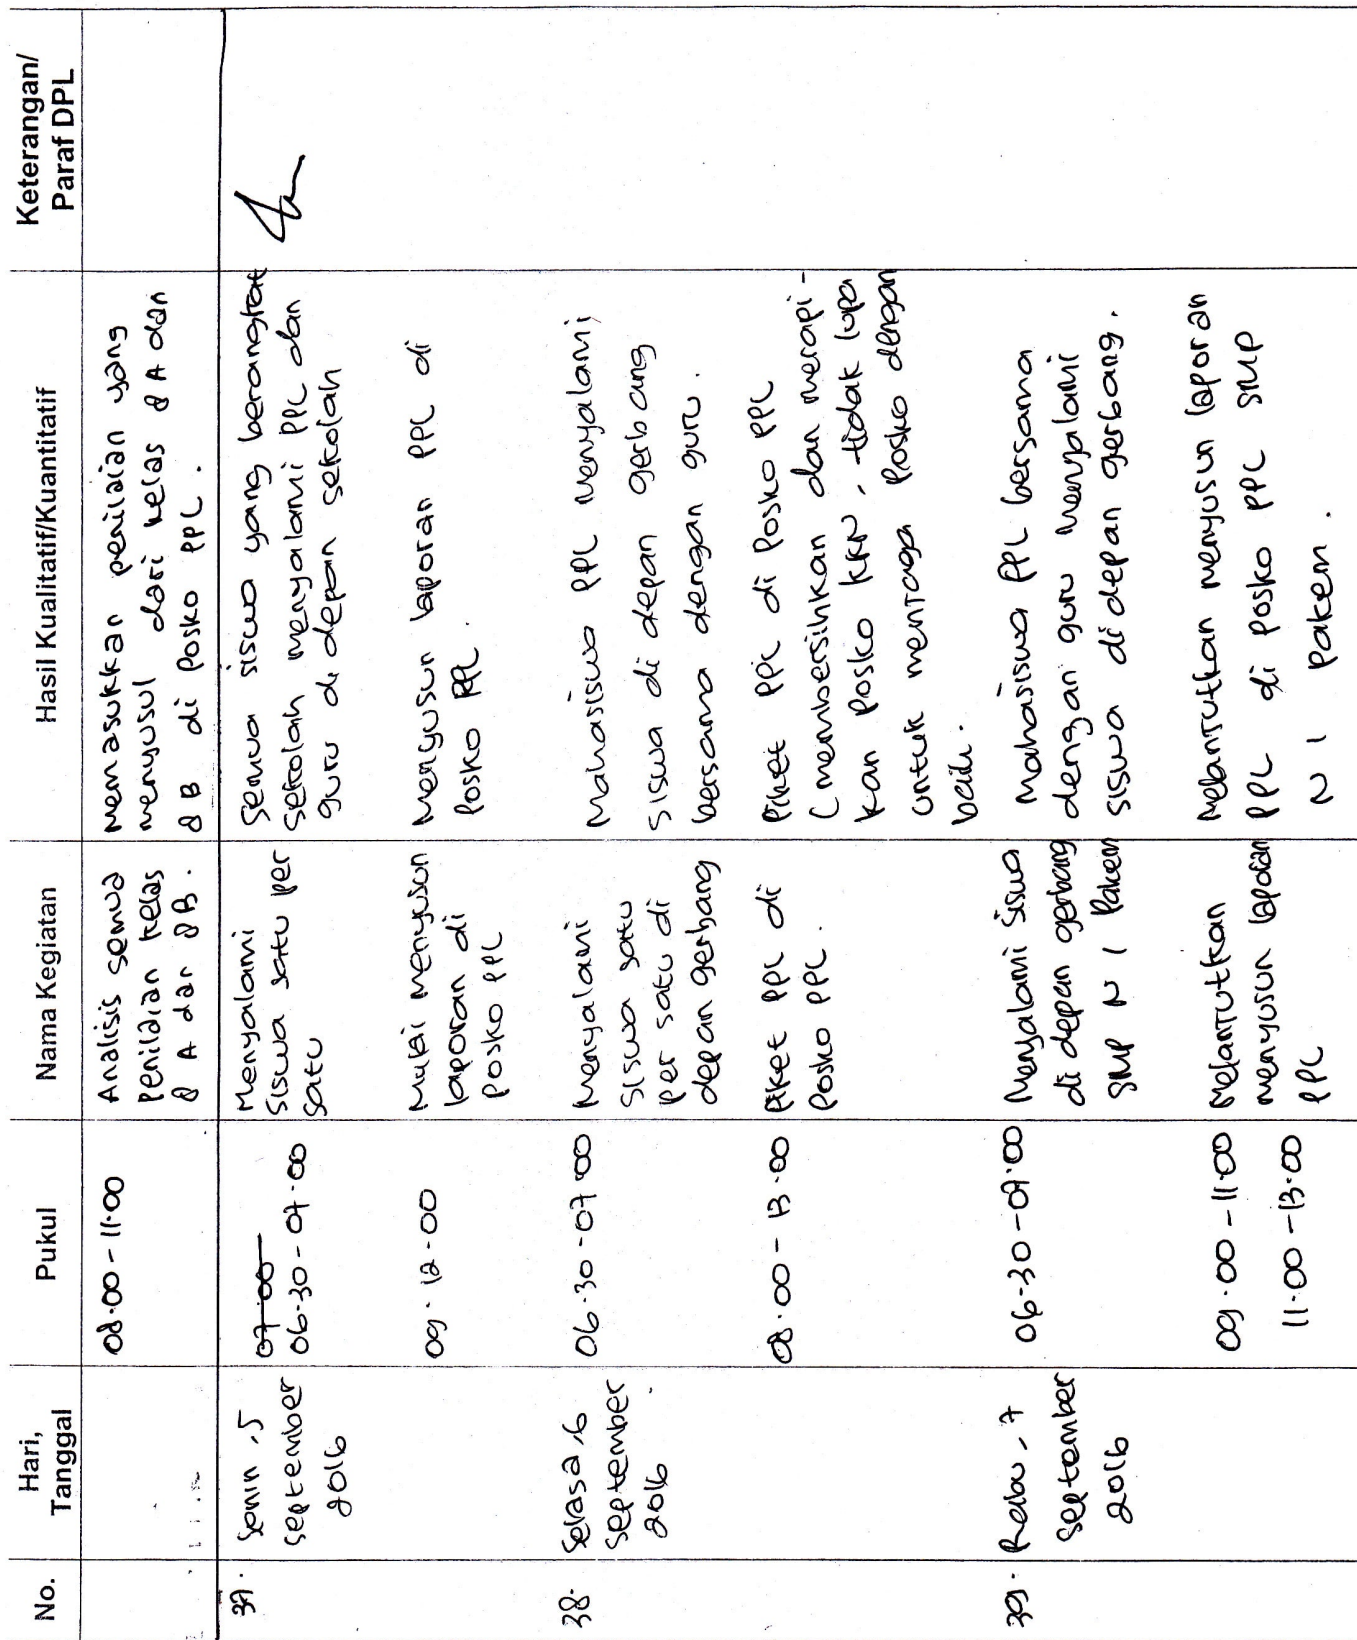 No.
Hari,
Tanggal
Pukul
Nama Kegiatan
Hasil Kualitatif/Kuantitatif
Keterangan/
Paraf DPL
08.00 - 11.00
Analisis semua
penilaian kelas
8 A dan 8B.
memasukkan penilaian yang
menyusul dari kelas 8 A dan
8 B di posko PPL.
37.
Senin, 5
September
2016
07.00
06.30 - 07.00
Menyalami
siswa satu per
satu
Semua siswa yang berangkat
sekolah menyalami PPL dan
guru di depan sekolah
09.12.00
Mulai menyusun
laporan di
posko PPL
Menyusun laporan PPL di
Posko PPL
38.
Selasa, 6
September
2016
06.30 - 07.00
Menyalami
siswa satu
per satu di
depan gerbang
Mahasiswa PPL menyalami
siswa di depan gerbang
bersama dengan guru.
08.00 - 13.00
Piket PPL di
Posko PPL.
Piket PPL di Posko PPL
(membersihkan dan merapi-
kan posko KKN, tidak lupa
untuk menjaga Posko dengan
baik.
39.
Rabu, 7
September
2016
06.30 - 07.00
Menyalami siswa
di depan gerbang
SMP N 1 Pakem
Mahasiswa PPL bersama
dengan guru menyalami
siswa di depan gerbang.
09.00 - 11.00
11.00 - 13.00
Melanjutkan
menyusun laporan
PPL
Melanjutkan menyusun laporan
PPL di posko PPL SMP
N 1 Pakem.